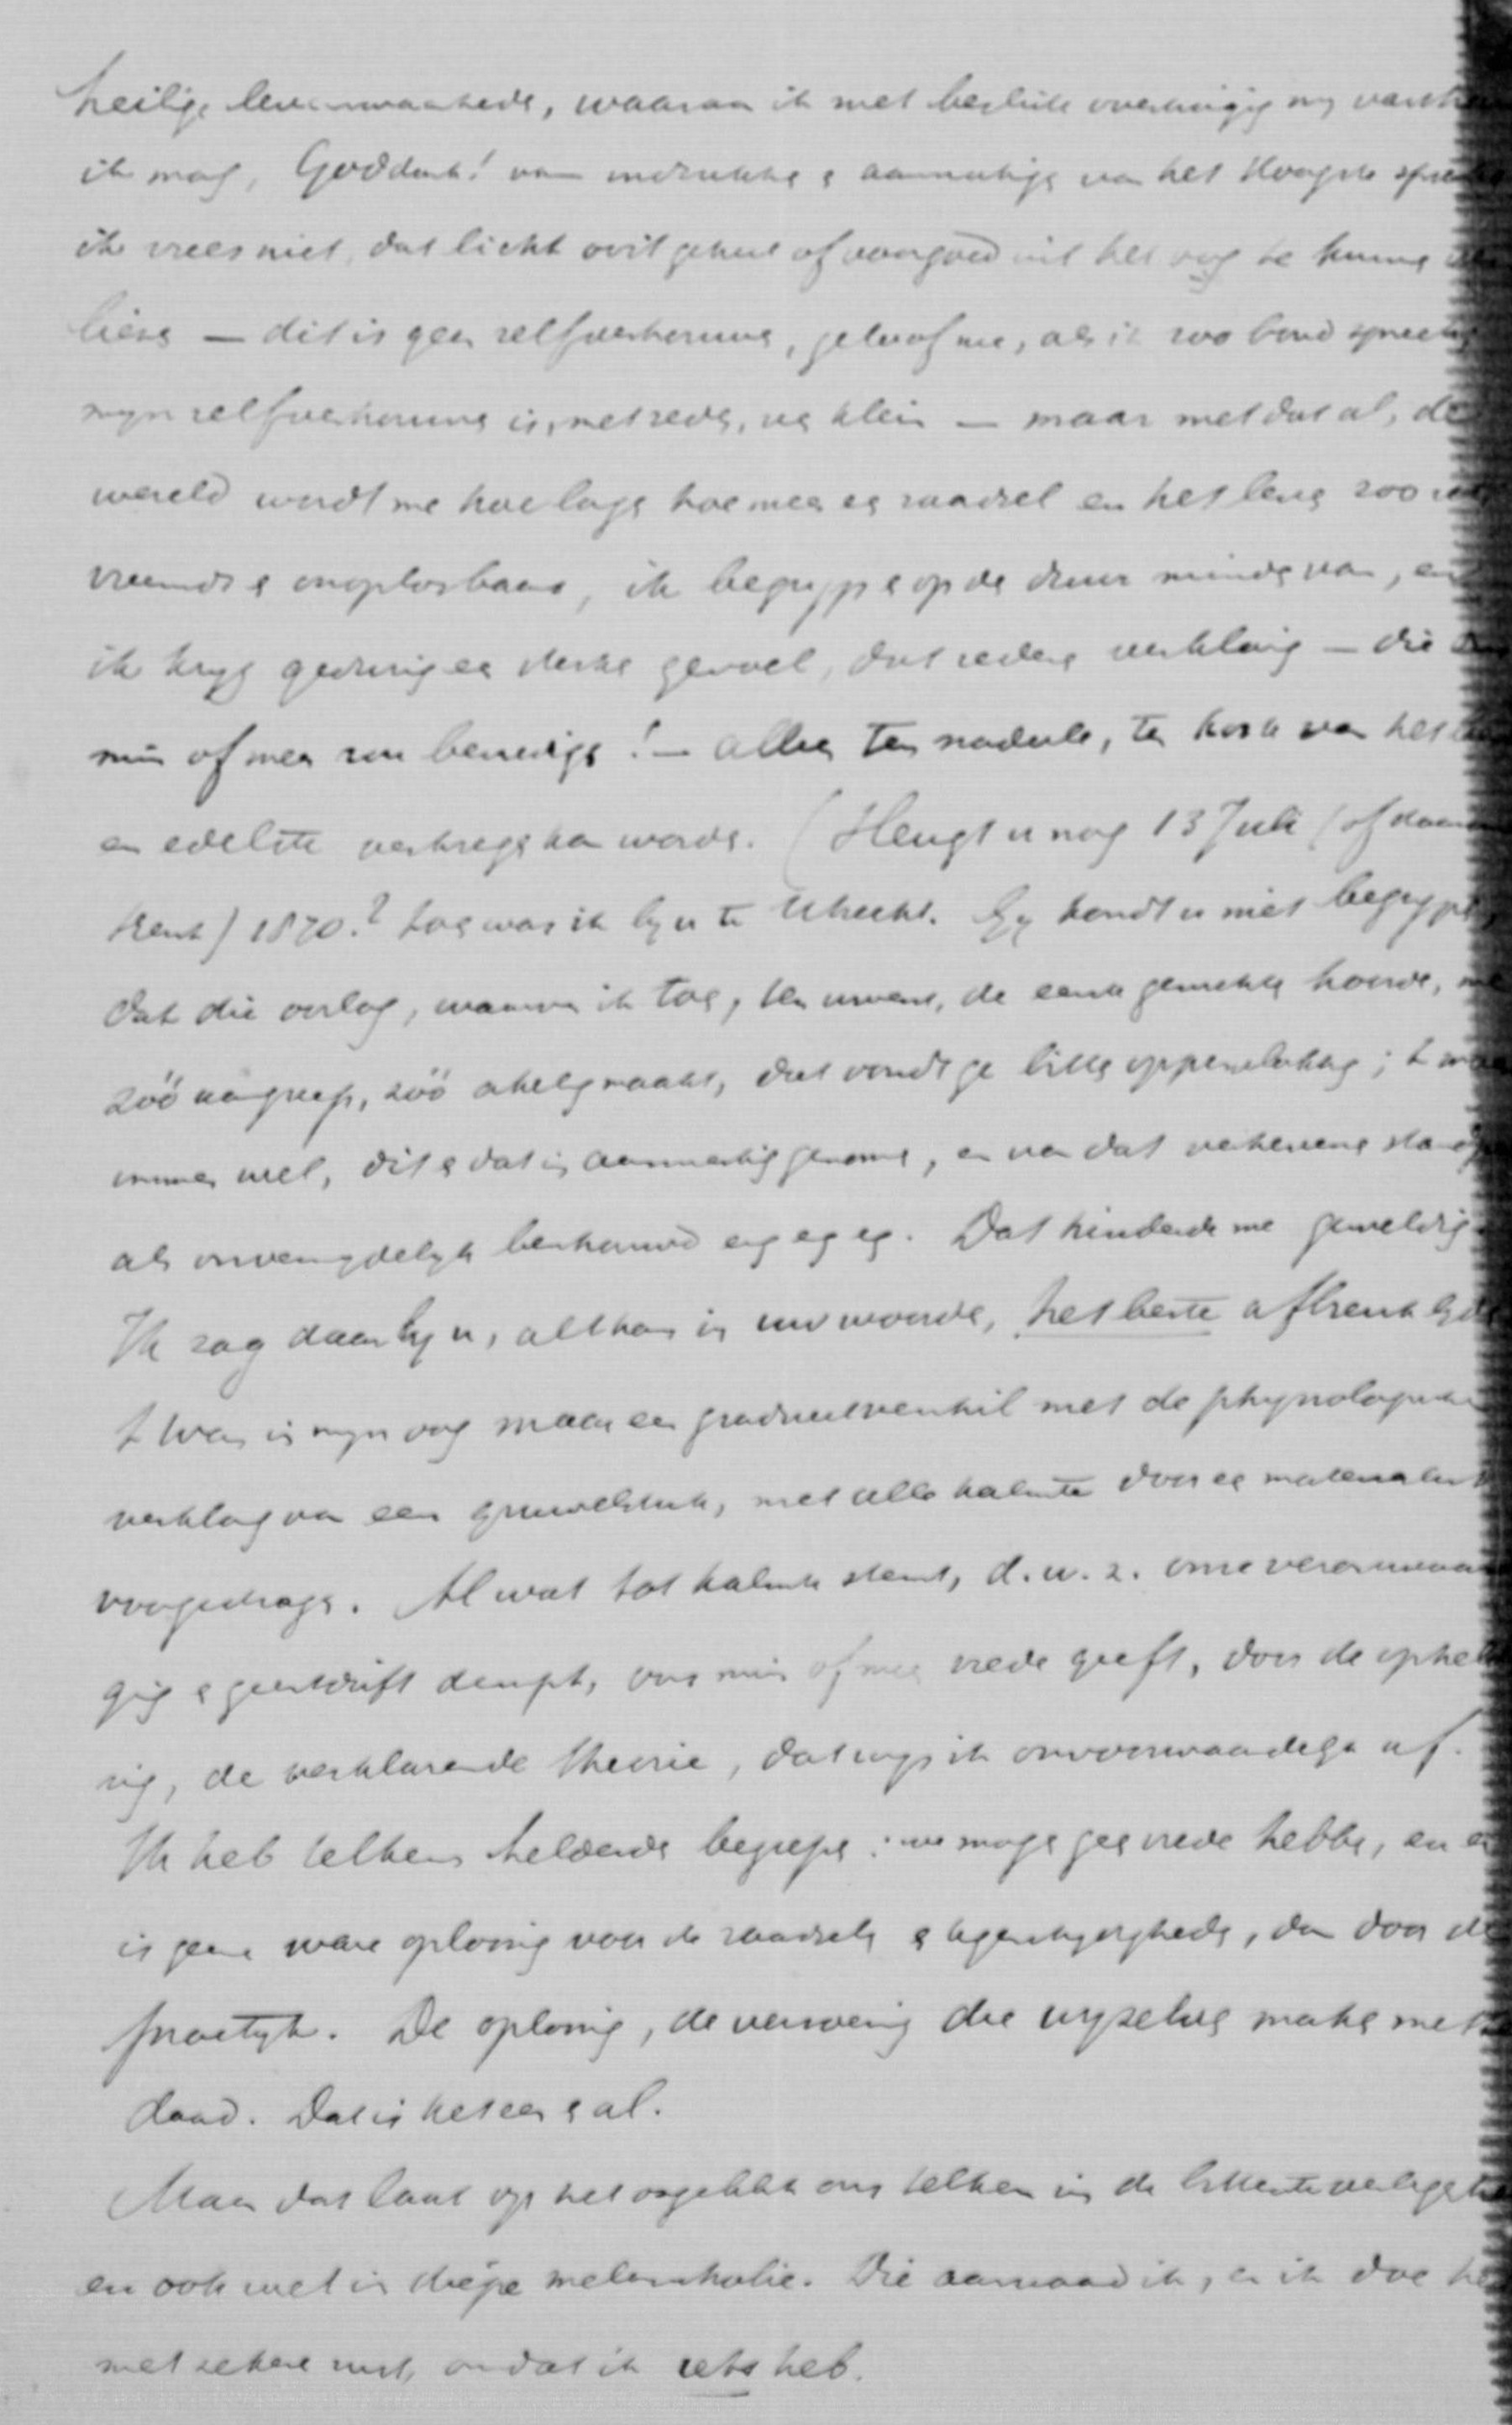 heilige levenswaarheden, waaraan ik met besliste overtuiging my
ik mag, Goddank! van indrukken en aanrakingen van het Hoogste
ik vrees niet, dat licht ooit geheel of voorgoed uit het oog te kunnen
liezen — dit is geen zelfvertrouwen, geloof me, als ik zoo boud spreek
myn zelfvertrouwen is, met reden, zeer klein — maar met dat al, de
wereld wordt me hoe langer hoe meer een raadsel en het leven zoo
vreemd en onoplosbaar, ik begryp er op den duur minder van, en
ik kryg gedurig een sterker gevoel, dat iedere verklaring — die
min of meer zou bevredigen! — alleen ten nadeele, ten koste van het
en edelste verkregen kan worden. (Heugt u nog 13 Juli (of daarom
trent) 1870? toen was ik by u te Utrecht. Gy kondt u niet begrypen
dat die oorlog, waarvan ik toen, ten uwent, de eerste geruchten hoorde,
zóó aangreep, zóó akelig maakte, dat vondt ge licht oppervlakkig; t was
immers wel, dit en dat in aanmerking genomen, en van dat verheven
als onvermydelyk beschouwd enz enz enz. Dat hinderde me geweldig.
Ik zag daar by u, althans in uw woorden, het beste afbreuk lyden
t was in myn oog maar een gradueel verschil met de physiologische
verklaring van een gruwelstuk, met alle kalmte door een materialist
voorgedragen. Al wat tot kalmte stemt, d.w.z. onze verontwaar
ging en geestdrift dempt, ons min of meer vrede geeft, door de ophelde
ring, de verklarende theorie, dat wys ik onvoorwaardelyk af.
Ik heb telkens helderder begrepen: we mogen geen vrede hebben, en er
is geen ware oplossing voor de raadsels en tegenstrydigheden, dan door de
practyk. De oplossing, de verzoening die wy zelven maken met de
daad. Dat is het een en al.
Maar dat laat op het oogenblik ons telkens in de bitterste verlegenheid
en ook wel in diepe melancholie. Die aanvaard ik, en ik doe het
met zekere rust, omdat ik iets heb.